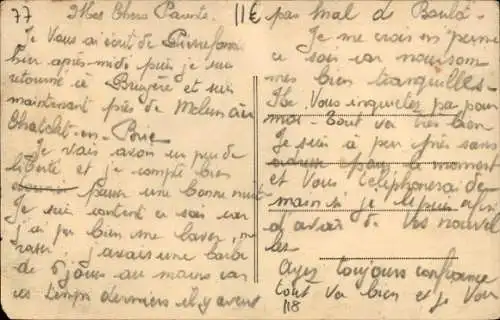 77
Mes Chers Parents.
Je Vous ai écrit de Pierrefonds
hier après-midi puis je suis
retourné à Bruyère et suis
maintenant près de Melun à
Chatelet-en-Brie
Je vais avoir un peu de
liberté et je compte bien
passer une bonne nuit
Je suis content ce soir car
j'ai pu bien me laver, me
raser. j'avais une barbe
de 5 jours au moins car
ces temps derniers il y avait
11€
pas mal de Boulot.
Je me crois en perme
ce soir car nous sommes
bien tranquilles.
Ne Vous inquiétez pas pour
moi. Tout va très bien
Je suis à peu près sans
adresse pour le moment
et Vous téléphonerai de-
main si je le puis afin
d'avoir de Vos nouvel
les
Ayez toujours confiance
tout va bien et je Vous
118